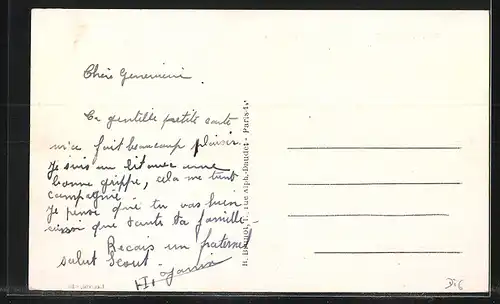 Chère Genevieve
Ta gentille petite carte
m'a fait beaucoup plaisir.
Je suis au lit avec une
bonne grippe, cela me tient
compagnie.
Je pense que tu vas bien
aussi que toute ta famille
Recois un fraternel
salut Scout.
rue Alph. Daudet - Paris